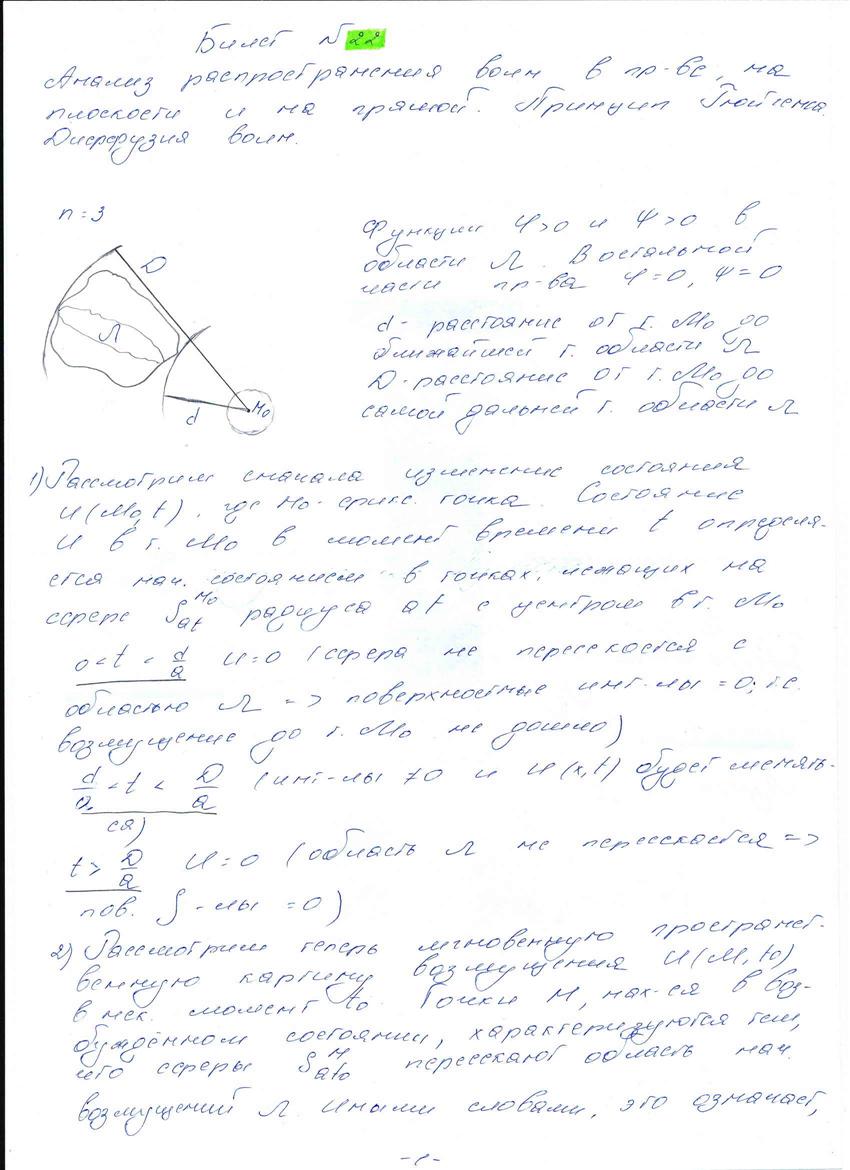 Билет № 22
Анализ распространения волн в пр-ве, на
плоскости и на прямой. Принцип Гюйгенса.
Диффузия волн.
n=3
D
Λ
d
M₀
Функции φ>0 и ψ>0 в
области Λ. В остальной
части пр-ва φ=0, ψ=0
d - расстояние от т. M₀ до
ближайшей т. области Λ
D - расстояние от т. M₀ до
самой дальней т. области Λ
1) Рассмотрим сначала изменение состояния
U(M₀,t), где M₀ - фикс. точка. Состояние
U в т. M₀ в момент времени t определя-
ется нач. состоянием в точках, лежащих на
сфере S_at^M₀ радиуса at с центром в т. M₀
0<t<d/a U=0 (сфера не пересекается с
областью Λ => поверхностные инт-лы =0; т.е.
возмущение до т. M₀ не дошло)
d/a<t<D/a (инт-лы ≠0 и U(x,t) будет менять-
ся)
t>D/a U=0 (область Λ не пересекается =>
пов. ∫-лы =0)
2) Рассмотрим теперь мгновенную пространст-
венную картину возмущения U(M,t₀)
в нек. момент t₀. Точки M, нах-ся в воз-
буждённом состоянии, характеризуются тем,
что сферы S_at₀^M пересекают область нач.
возмущений Λ. Иными словами, это означает,
-1-